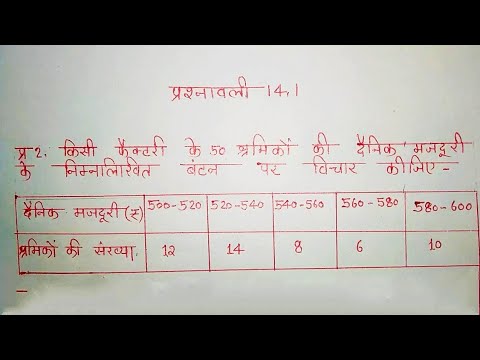 प्रश्नावली 14.1
प्र 2. किसी फैक्टरी के 50 श्रमिकों की दैनिक मजदूरी
के निम्नलिखित बंटन पर विचार कीजिए -
दैनिक मजदूरी (₹) 500-520 520-540 540-560 560-580 580-600
श्रमिकों की संख्या. 12 14 8 6 10